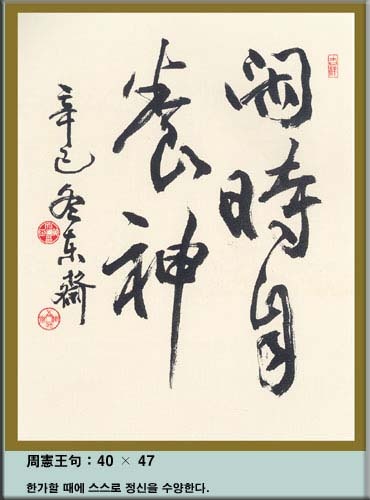 閑時自
養神
辛巳冬東齋
周憲王句 : 40 × 47
한가할 때에 스스로 정신을 수양한다.